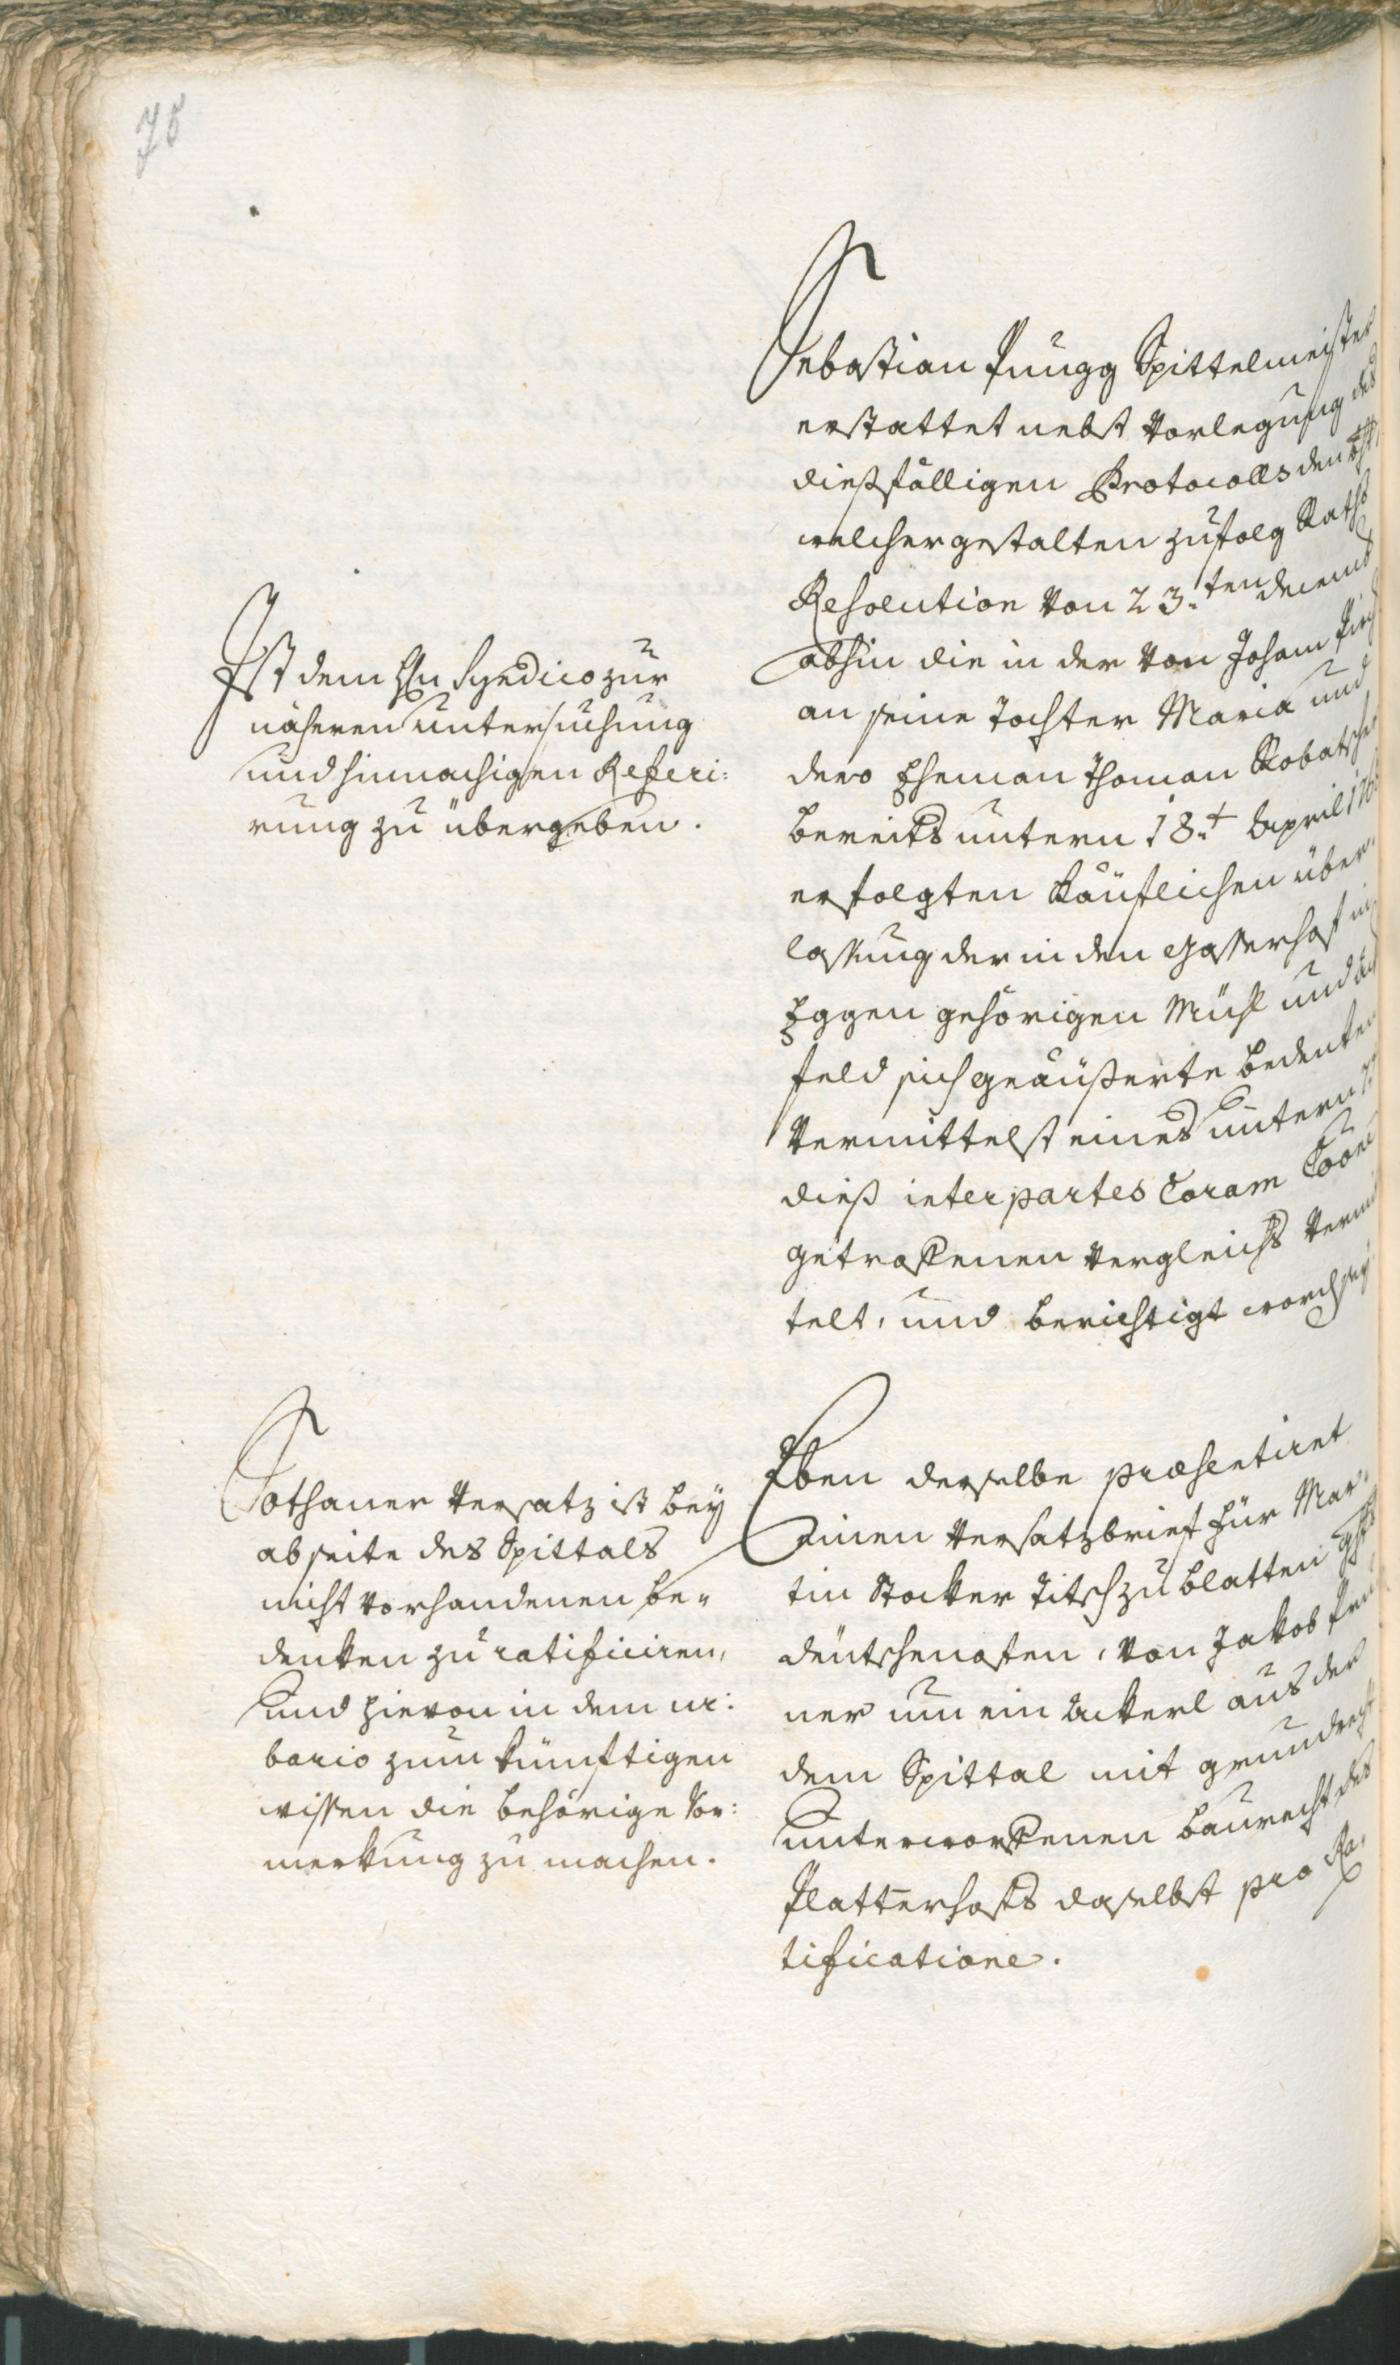 78
Sebastian Pungg Spittelmeister
erstattet nebst Vorlegung des
dießfälligen Protocolls den
welchergestalten zufolg Raths
Resolution von 23.ten decemb
abhin die in der von Johann
an seine Tochter Maria und
dero Eheman Thoman Kobatscher
bereits untern 18.t April
erfolgten Kauflichen über
lassung der in den Gasserhof in
Eggen gehörigen Mühl und
feld sich geäußerte bedenken
Vermittelst eines untern
dieß inter partes Coram
getroffenen Vergleichs Vermit
telt, und berichtigt
Ist dem Hn Syndico zur
näheren untersuchung
und hinnachigen Referi:
rung zu übergeben.
Eben derselbe præsentiret
einen Versatzbrief für Mar:
tin Stocker Titsch zu blatten
deutschenofen, Von Jakob
ner um ein Ackerl aus der
dem Spittal mit grundrecht
unterworfenen baurecht des
Platterhofs daselbst pro Ra:
tificatione.
Sothaner Versatz ist bey
abseite des Spittals
nicht Vorhandenen be„
denken zu ratificiren,
und hievon in dem ur:
bario zum künftigen
wissen die behörige Vor:
merkung zu machen.